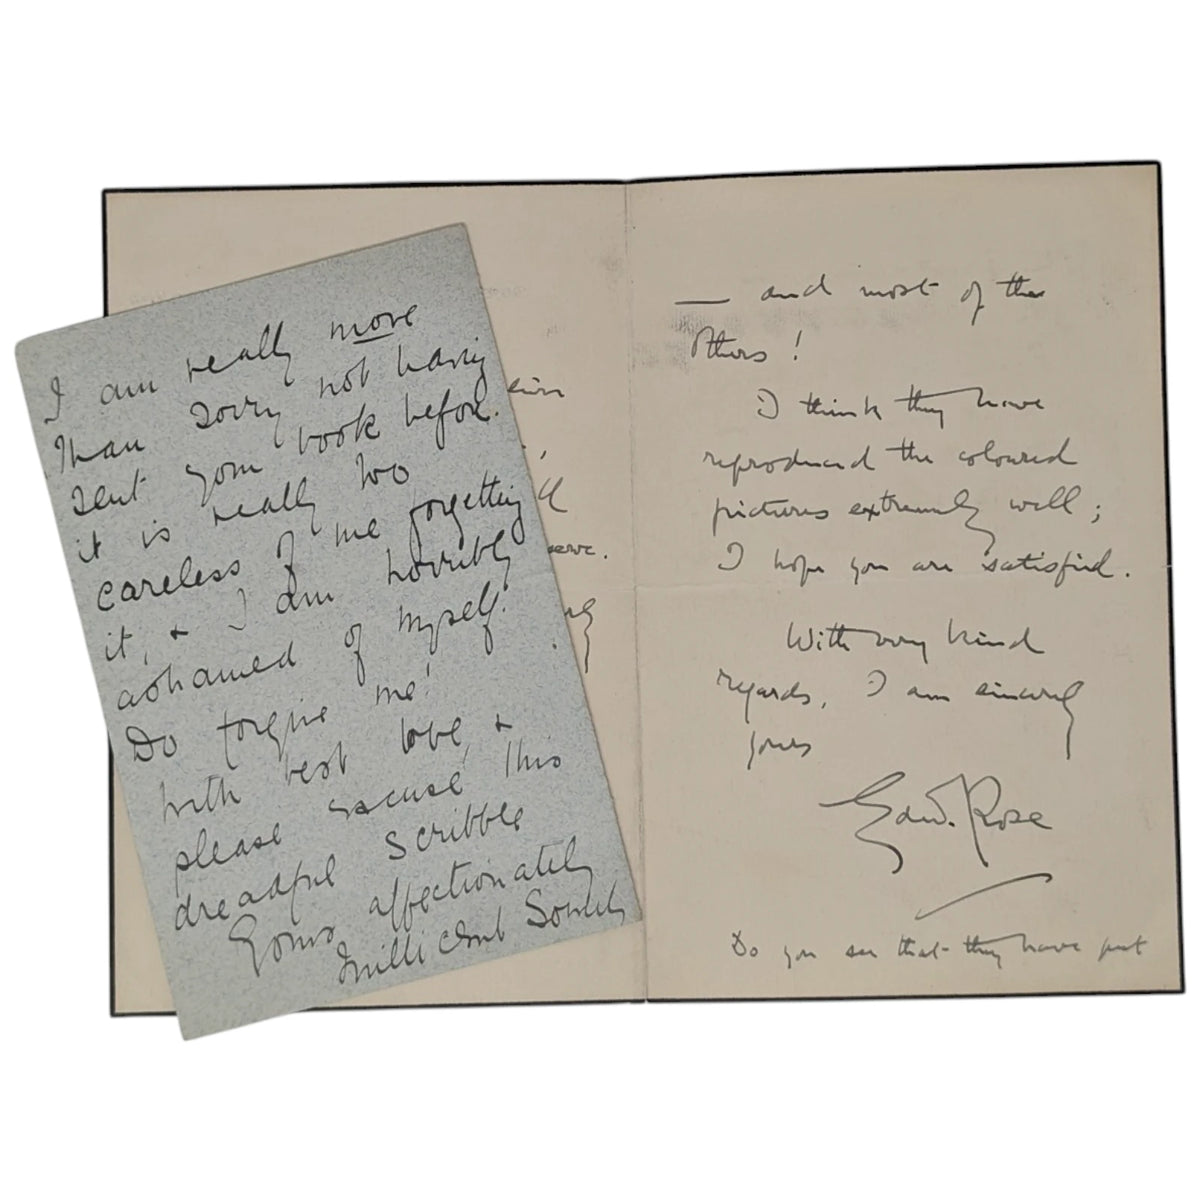 I am really more
than sorry not having
sent your book before.
it is really too
careless of me forgetting
it, & I am horribly
ashamed of myself.
Do forgive me!
with best love, &
please excuse this
dreadful scribble
Yours affectionately
Millicent
— and most of the
others!
I think they have
reproduced the coloured
pictures extremely well;
I hope you are satisfied.
With very kind
regards, I am sincerely
yours
Edw. Rose
Do you see that they have put